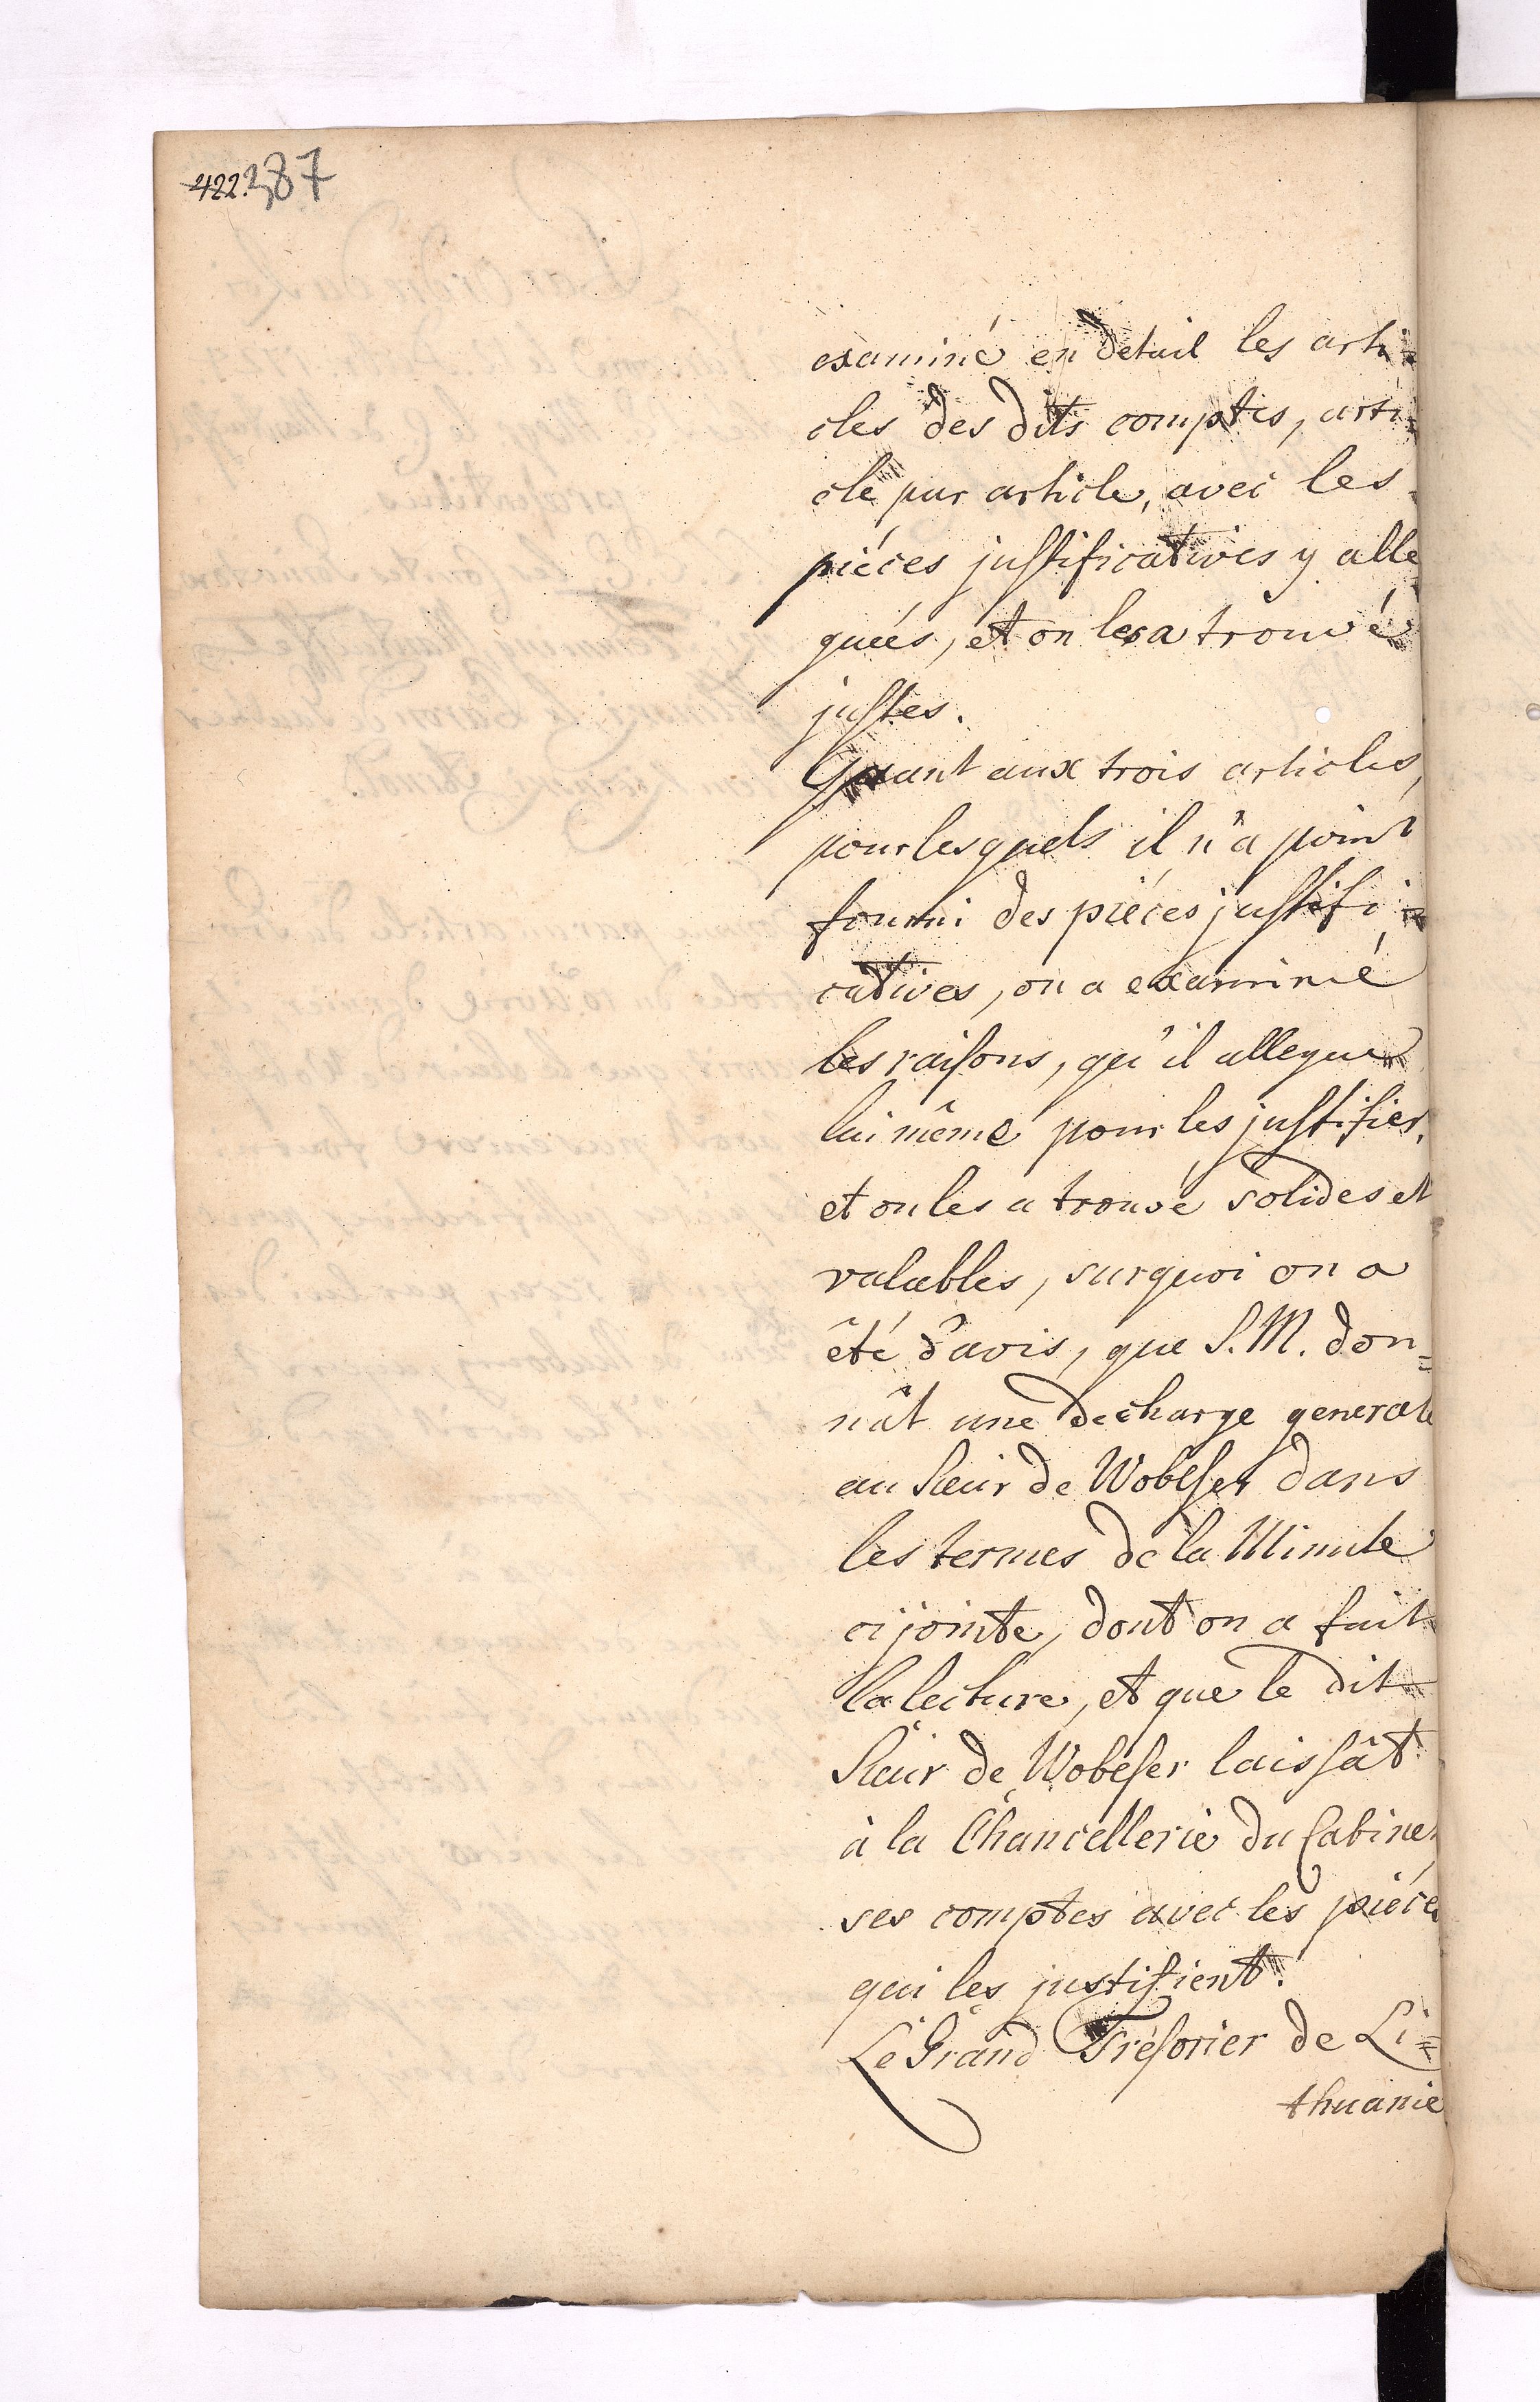 422. 387
examiné en detail les arti=
cles des dits comptes, arti=
cle par article, avec les
piéces justificatives y alle
guées, et on les a trouvé
justes.
Quant aux trois articles,
pour lesquels il n'a point
fourni des piéces justifi=
catives, on a examiné
les raisons, qu'il allegue
lui même pour les justifier,
et on les a trouvé solides et
valables, surquoi on a
êté d'avis, que S. M. don=
nât une decharge generale
au Sieur de Wobeser dans
les termes de la Minute
ci jointe, dont on a fait
la lecture, et que le dit
Sieur de Wobeser laissât
à la Chancellerie du Cabinet
ses comptes avec les piéces
qui les justifient.
Le Grand Trésorier de Li=
thuanie